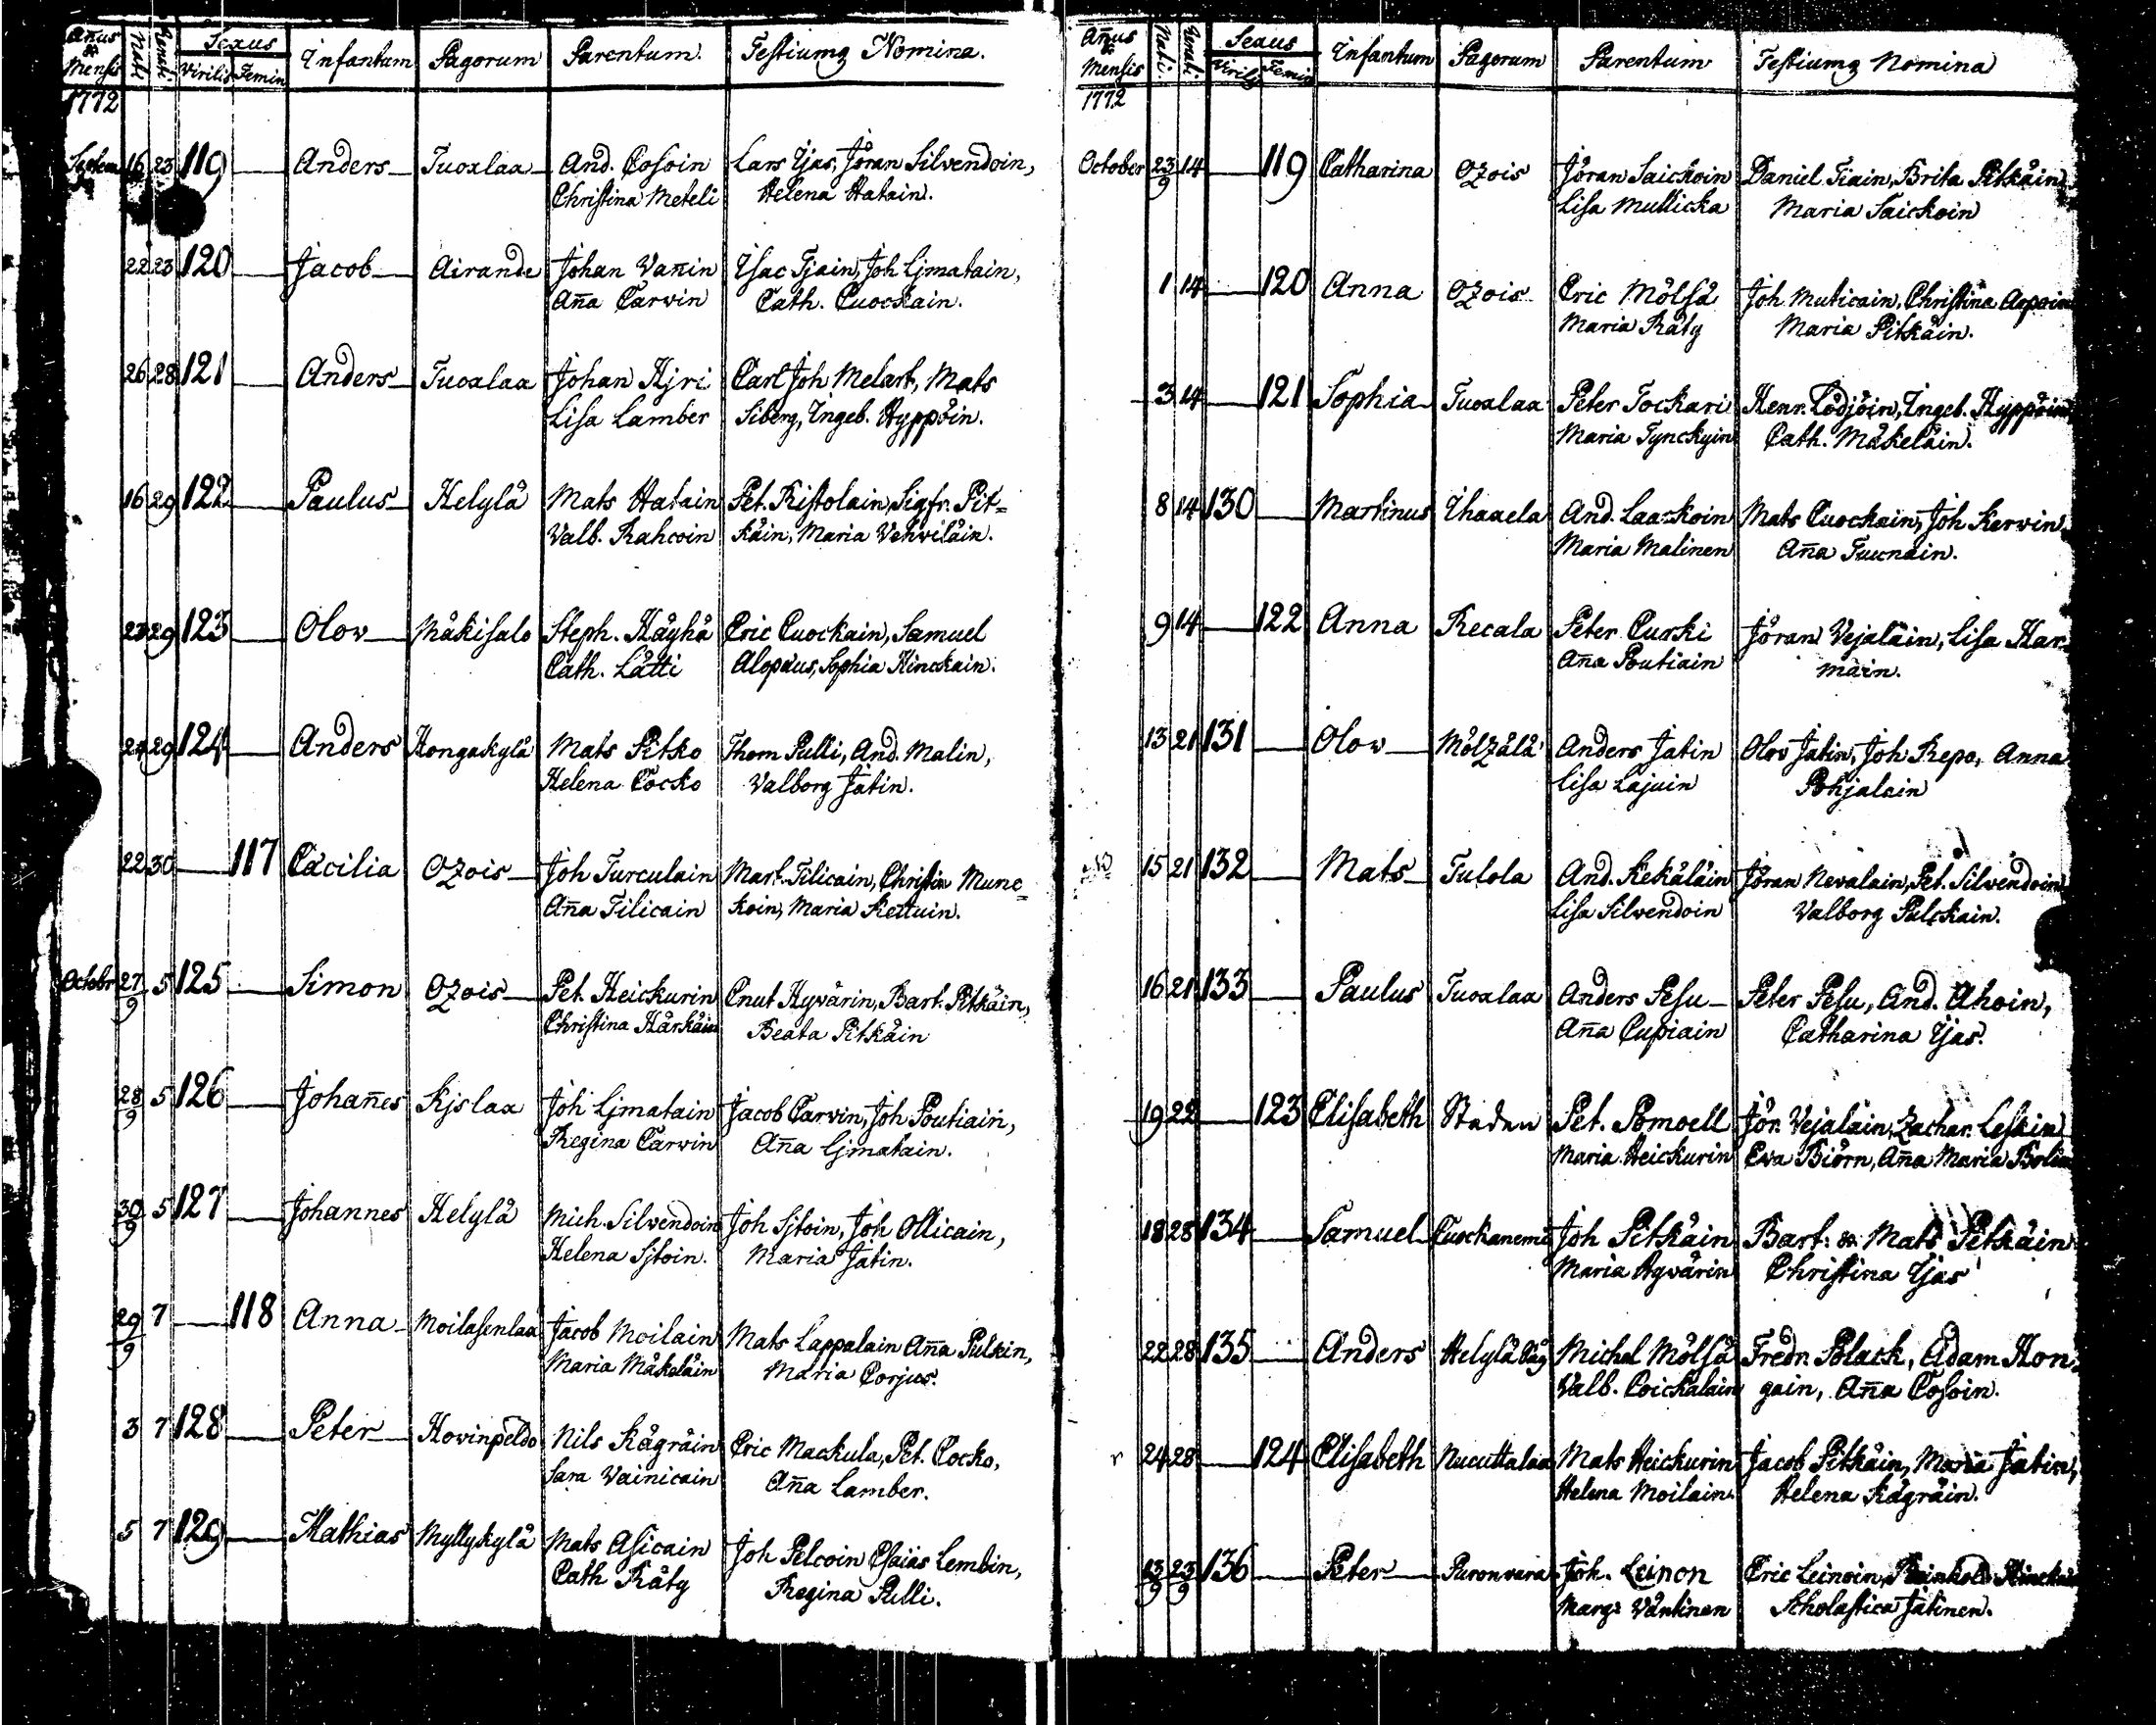 Añus & Mensis Nati Renati Sexus Virilis Femin Infantum Pagorum Parentum Testiumq Nomina.
1772
Septem 16 23 119 Anders Tuoxlax And. Cossoin Lars Ijas, Jöran Silvendoin,
Christina Meteli Helena Hatain.
22 23 120 Jacob Airande Johan Vanin Isac Tjain, Joh Ljmatain,
Aña Carwin Cath. Cuockain.
26 28 121 Anders Tuoxlax Johan Kjri Carl Joh Melart, Mats
Lisa Lamber Siberg, Ingeb. Hyppöin.
16 29 122 Paulus Helylä Mats Hatain Pet. Ristolain, Sigfr. Pit=
Valb. Rahcoin käin, Maria Vehviläin.
23 29 123 Olov Mäkisalo Steph. Häyhä Eric Cuockain, Samuel
Cath. Lätti Alopæus, Sophia Hinckain.
24 29 124 Anders Hongakylä Mats Pitko Thom Pulli, And. Malin,
Helena Cocko Valborg Jätin.
22 30 117 Cæcilia Ozois Joh Turculain Mart. Tilicain, Christin Munc=
Aña Tilicain koin, Maria Kettuin.
Octobr 27/9 5 125 Simon Ozois Pet. Heickurin Cnut Hyvärin, Bart. Pitkäin,
Christina Härkäin Beata Pitkäin
28/9 5 126 Johañes Kjslax Joh Ljmatain Jacob Carvin, Joh Poutiain,
Regina Carwin Aña Ljmatain.
30/9 5 127 Johannes Helylä Mich. Silvendoin Joh Sjtoin, Joh Ollicain,
Helena Sjtoin. Maria Jätin.
29/9 7 118 Anna Moilasenlax Jacob Moilain Mats Lappalain Aña Pulkin,
Maria Mäkeläin Maria Corjus.
3 7 128 Peter Hovinpeldo Nils Kägräin Eric Mackula, Pet. Cocko,
Sara Vainicain Aña Lamber.
5 7 129 Mathias Myllykylä Mats Asicain Joh Pelcoin Esaias Lembin,
Cath Räty Regina Pulli.
Añus & Mensis Nati Renati Sexus Virilis Femin Infantum Pagorum Parentum Testiumq Nomina
1772
October 23/9 14 119 Catharina Ozois Jöran Saickoin Daniel Tiain, Brita Pitkäin
Lisa Mullicka Maria Saickoin
1 14 120 Anna Ozois Eric Mölsä Joh Muticain, Christina
Maria Räty Maria Pitkäin.
3 14 121 Sophia Tuoxlax Peter Tockari Henr. Lödjöin, Ingeb. Hyppöin
Maria Tynckyin Cath. Mäkeläin.
8 14 130 Martinus Ihaxela And. Laackoin Mats Cuockain, Joh Kerwin
Maria Malinen Aña Tuunain.
9 14 122 Anna Recala Peter Curki Jöran Vejaläin, Lisa Har=
Aña Poutiain main.
13 21 131 Olov Mölzälä Anders Jätin Olov Jätin, Joh Repo, Anna
Lisa Lajuin Pohjalain
15 21 132 Mats Tulola And. Kekäläin Jöran Nevalain, Pet. Silvendoin
Lisa Silvendoin Valborg Pulckain.
16 21 133 Paulus Tuoxlax Anders Pesu Peter Pesu, And. Ahoin,
Aña Cupiain Catharina Ijas.
19 22 123 Elisabeth Staden Pet. Pomoell Jör. Vejaläin, Zachar. Leskin
Maria Heickurin Eva Biörn, Aña Maria
18 28 134 Samuel Cuockanemi Joh Pitkäin Bart: & Mats Pitkäin
Maria Hyvärin Christina Ijas
22 28 135 Anders Helylä Michel Mölsä Fredr Polack, Adam Hon=
Valb. Coickalain gain, Aña Cossoin.
24 28 124 Elisabeth Nucuttalax Mats Heickurin Jacob Pitkäin, Maria Jätin,
Helena Moilain. Helena Kägräin.
13/9 23/9 136 Peter Puronvara Joh. Leinon Eric Leinoin, Reinhold
Marg: Väntinen Scholastica Jätinen.